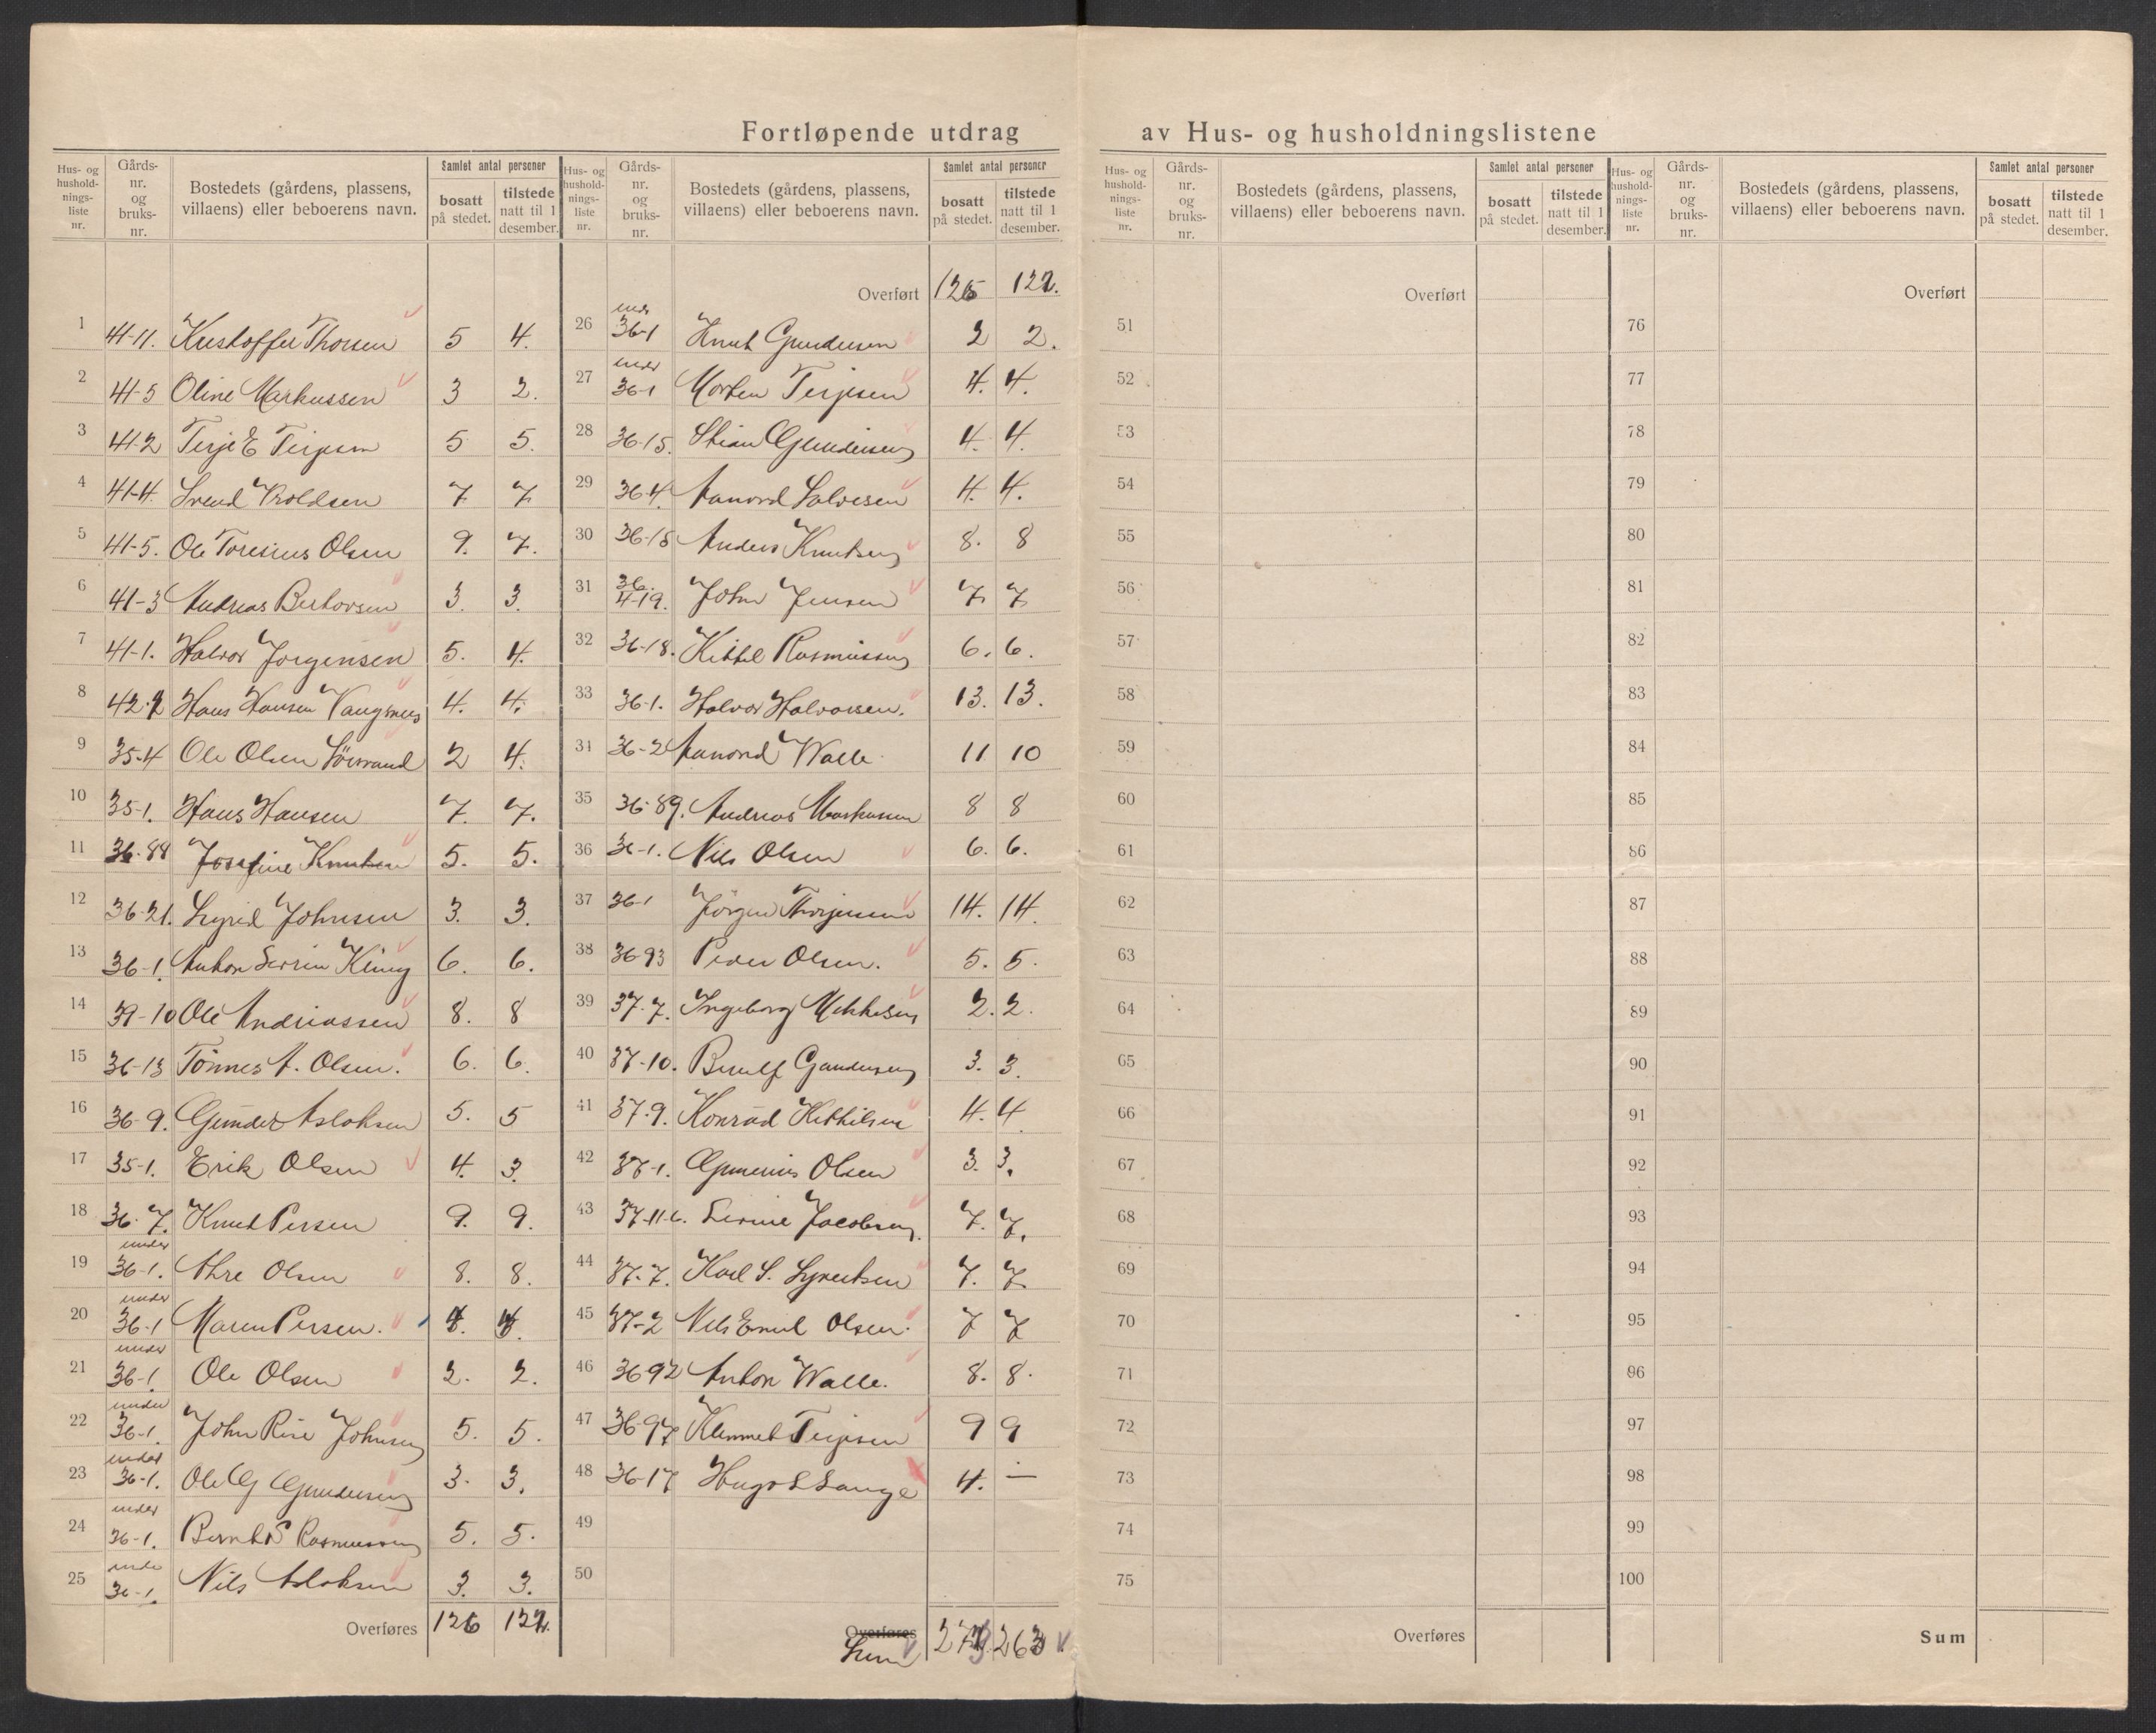 Fortløpende utdrag av Hus- og husholdningslistene
Hus- og hushold-nings-liste nr. Gårds-nr. og bruks-nr. Bostedets (gårdens, plassens, villaens) eller beboerens navn. Samlet antal personer bosatt på stedet. tilstede natt til 1 desember.
1 41-11. Kristoffer Thorsen 5 4.
2 41-5 Oline Markussen 3 2.
3 41-2 Terje E Terjesen 5 5.
4 41-4. Svend Roldsen 7 7
5 41-5. Ole Toresius Olsen 9. 7.
6 41-3 Andreas Berhovsen 3. 3.
7 41-1. Halvor Jorgensen 5. 4.
8 42-2 Hans Hansen Vangsnes 4. 4.
9 35-4 Ole Olsen 2 4.
10 35-1. Hans Hansen 7. 7.
11 36-88 Josefine Knutsen 5. 5.
12 36-21. Sigrid Johnsen 3. 3.
13 36-1. Anton Serrin Kling 6. 6.
14 39-10 Ole Andreassen 8. 8
15 36-13 Tönnes A. Olsen. 6. 6.
16 36-9. Gunder Aslaksen 5. 5
17 35-1. Erik Olsen 4. 3.
18 36-7. Knut Persen 9. 9.
19 under 36-1. Olsen 8. 8.
20 under 36-1 Maren Persen. 4. 4.
21 under 36-1. Ole Olsen 2. 2.
22 under 36-1. John Rise Johnsen 5. 5.
23 under 36-1. Ole G Gundersen 3. 3.
24 under 36-1. Bernt S Rasmussen 5. 5.
25 unde 36-1. Nils Aslaksen 3. 3.
Overføres 126 122.
Hus- og hushold-nings-liste nr. Gårds-nr. og bruks-nr. Bostedets (gårdens, plassens, villaens) eller beboerens navn. Samlet antal personer bosatt på stedet. tilstede natt til 1 desember.
Overført 126 122.
26 under 36-1 Knut Gundersen 2 2.
27 under 36-1 Morten Terjesen 4. 4.
28 36-15. Stian Gundersen 4. 4.
29 36-4. Aanond Salvesen 4. 4.
30 36-15 Anders Knutsen 8. 8
31 36. 4-19. John Jensen 7. 7
32 36-18. Kittel Rasmussen 6. 6.
33 36-1. Halvor Halvorsen. 13. 13.
34 36-2 Aanond Walle. 11 10
35 36-89. Andreas Markussen 8 8
36 36-1. Nils Olsen 6. 6.
37 36-1 Jörgen Thorjussen 14. 14.
38 36-93 Peder Olsen. 5. 5.
39 37-7. Ingeborg Mikkelsen 2. 2.
40 37-10. Gundersen 3. 3.
41 37-9. Konrad Kittilsen 4. 4
42 37-1. Gunerius Olsen 3. 3.
43 37-11-6. Serine Jacobsen. 7. 7.
44 37-7. Karl S. Syvertsen 7. 7.
45 37-2 Nils Emil Olsen. 7 7
46 36-92 Anton Walle. 8. 8.
47 36-97 Klemmet Terjesen 9 9
48 36-17 Hugo S Lange 4. —
49
50
Overføres Sum 273 263
Hus- og hushold-nings-liste nr. Gårds-nr. og bruks-nr. Bostedets (gårdens, plassens, villaens) eller beboerens navn. Samlet antal personer bosatt på stedet. tilstede natt til 1 desember.
Overført
51
52
53
54
55
56
57
58
59
60
61
62
63
64
65
66
67
68
69
70
71
72
73
74
75
Overføres
Hus- og hushold-nings-liste nr. Gårds-nr. og bruks-nr. Bostedets (gårdens, plassens, villaens) eller beboerens navn. Samlet antal personer bosatt på stedet. tilstede natt til 1 desember.
Overført
76
77
78
79
80
81
82
83
84
85
86
87
88
89
90
91
92
93
94
95
96
97
98
99
100
Sum